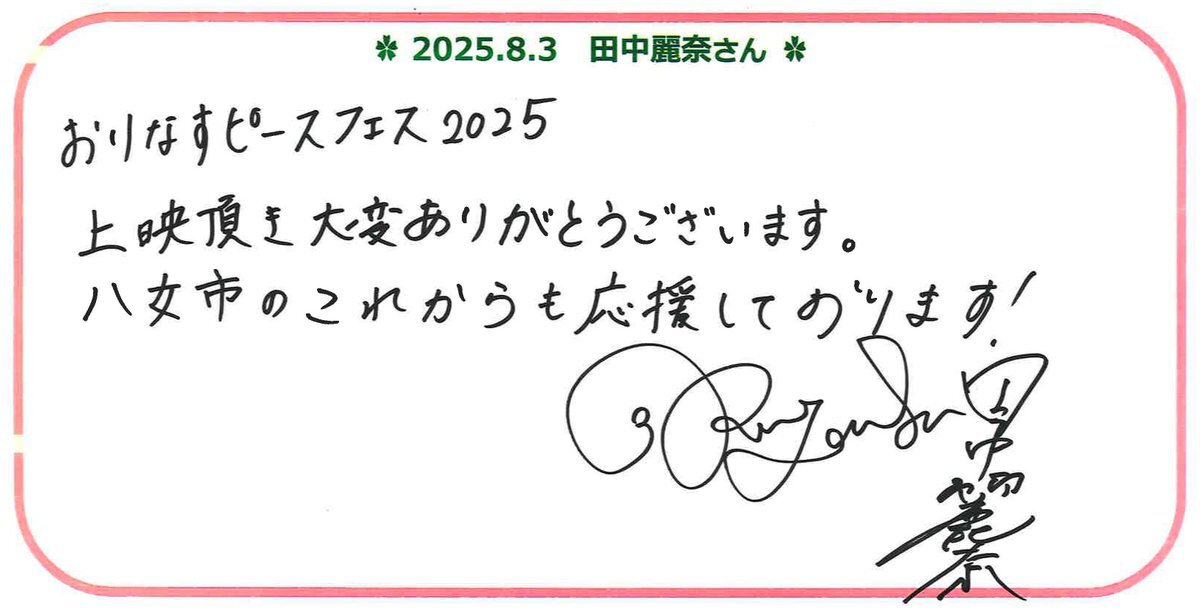 ✿ 2025.8.3　田中麗奈さん ✿
おりなすピースフェス2025
上映頂き大変ありがとうございます。
八女市のこれからも応援しております!
田中麗奈